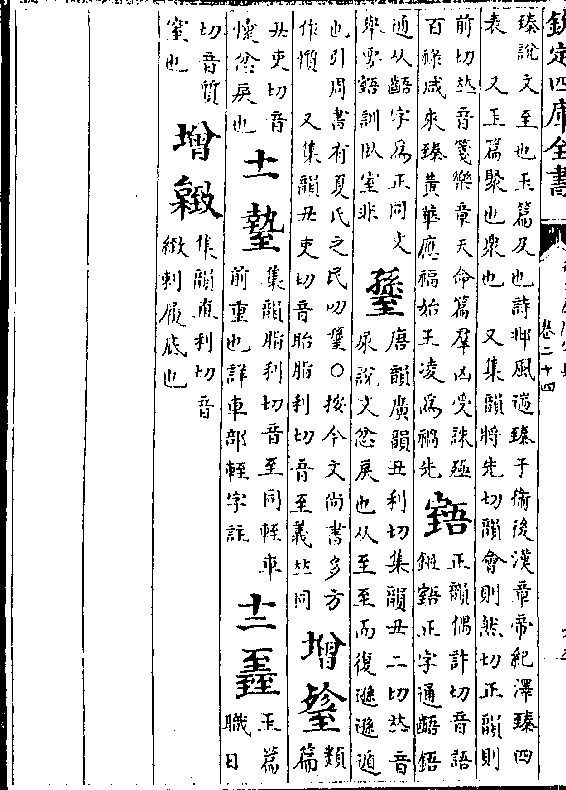 欽定四庫全書
卷二十四
臻說文至也玉篇及也詩邶風遄臻于衛後漢章帝紀澤臻四
表 又玉篇聚也衆也 又集韻將先切韻會則然切正韻則
前切𠀤音箋樂章天命篇羣凶受誅殛
百祿咸來臻黃華應福始王凌爲禍先
正韻偶許切音語
正字通齬
通从齬字爲正同文
舉要訓臥室非
唐韻廣韻丑利切集韻丑二切𠀤音
尿說文忿戾也从至至而復遜遜遁
也引周書有夏氏之民叨〇按今文尚書多方
作懫 又集韻丑吏切音眙脂利切音至義𠀤同
增
類
篇
丑吏切音
懷忿戾也
十一
集韻脂利切音至同輊車
前重也詳車部輊字註
十二
玉篇
職日
切音質
窒也
增
集韻直利切音
緻刺履底也